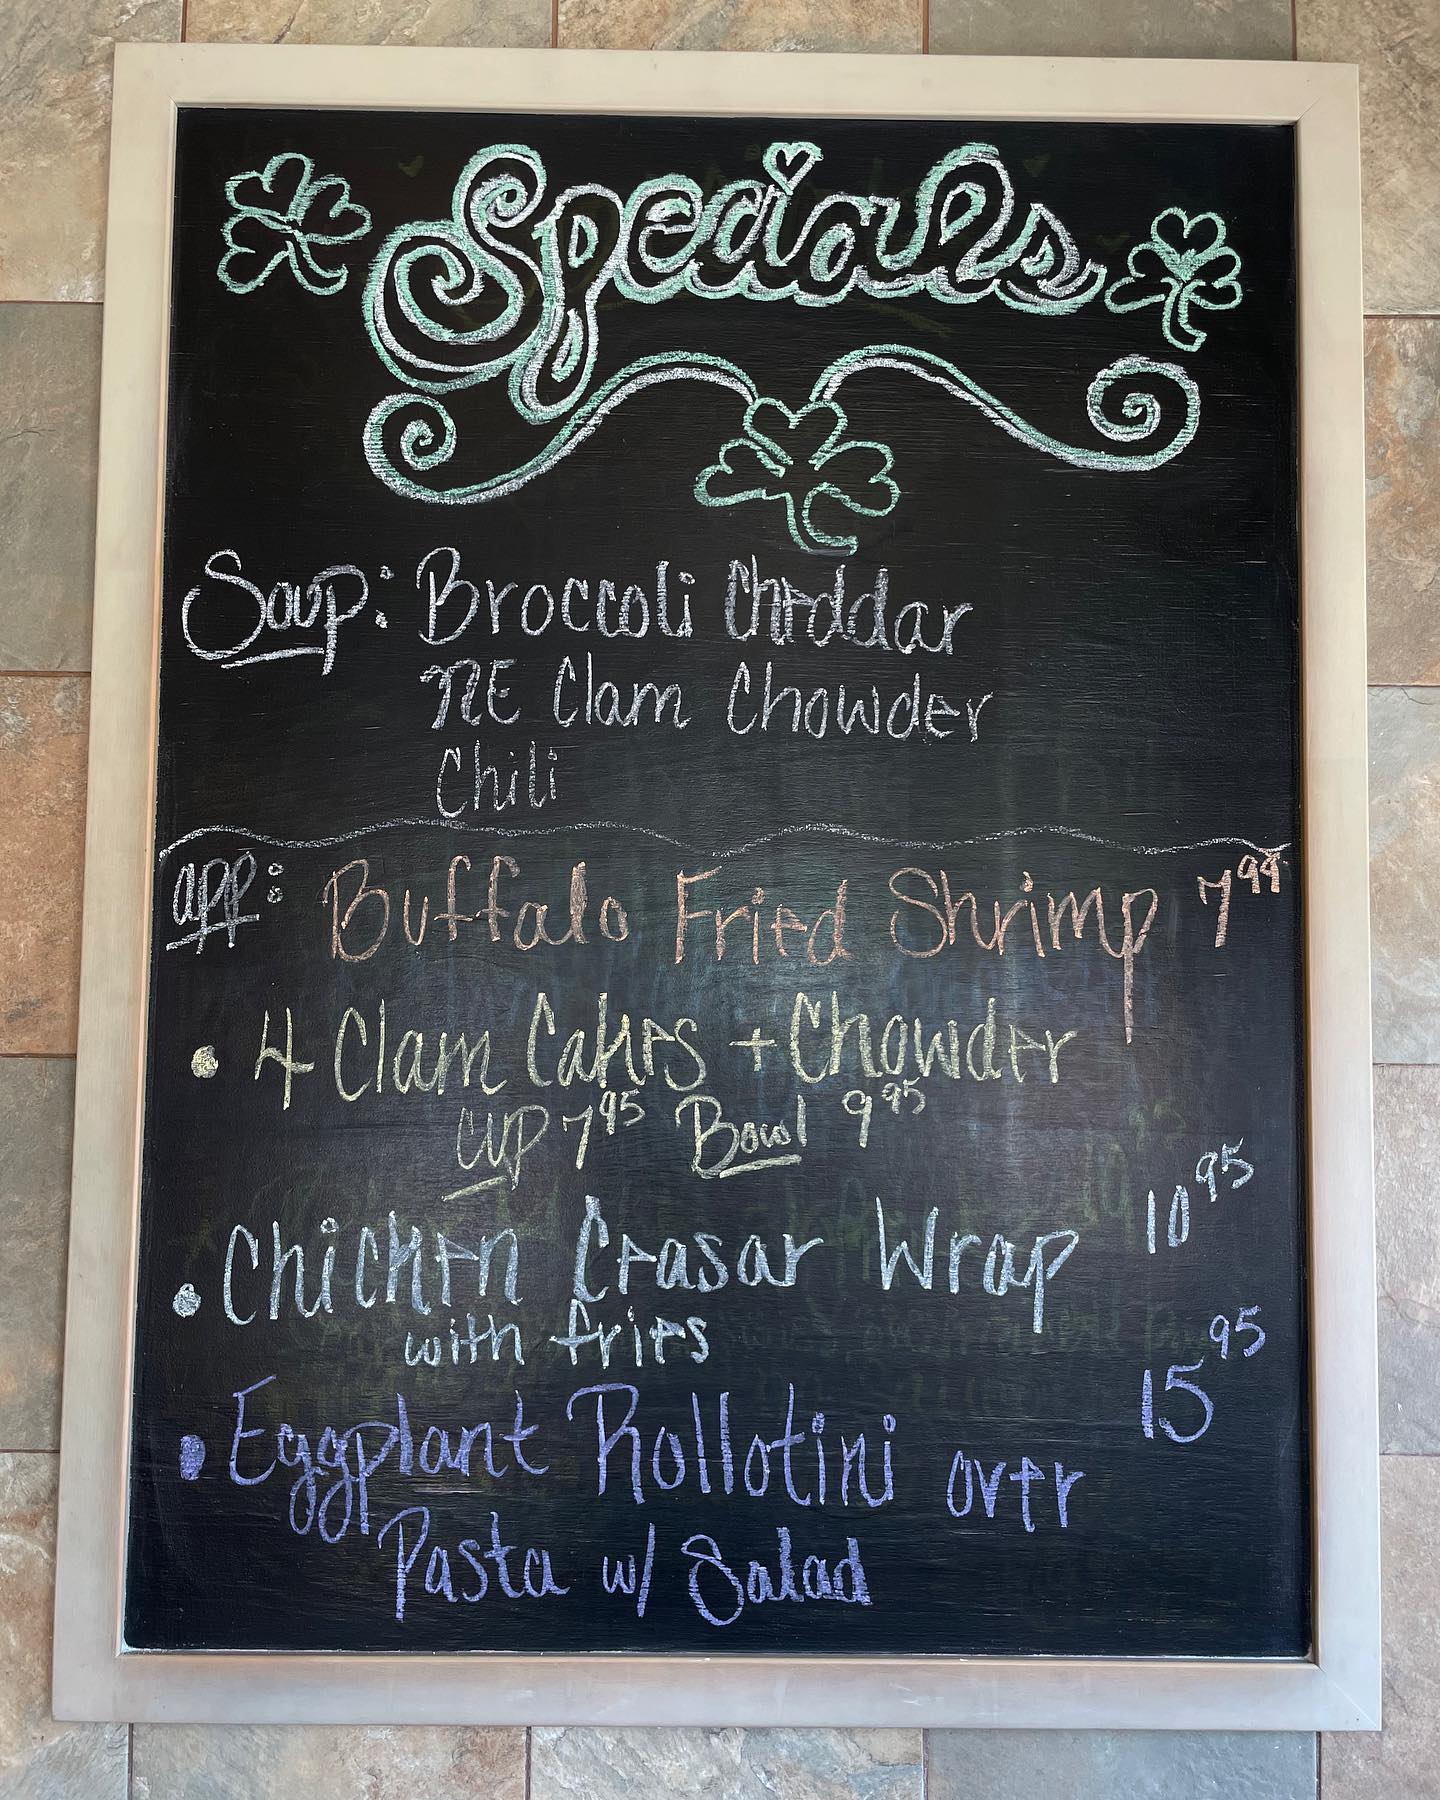 Specials
Soup: Broccoli Cheddar
NE Clam Chowder
Chili
APP: Buffalo Fried Shrimp 7.99
• 4 Clam Cakes + Chowder
Cup 7.95 Bowl 9.95
• Chicken Ceasar Wrap 10.95
with fries
• Eggplant Rollotini over 15.95
Pasta w/ Salad